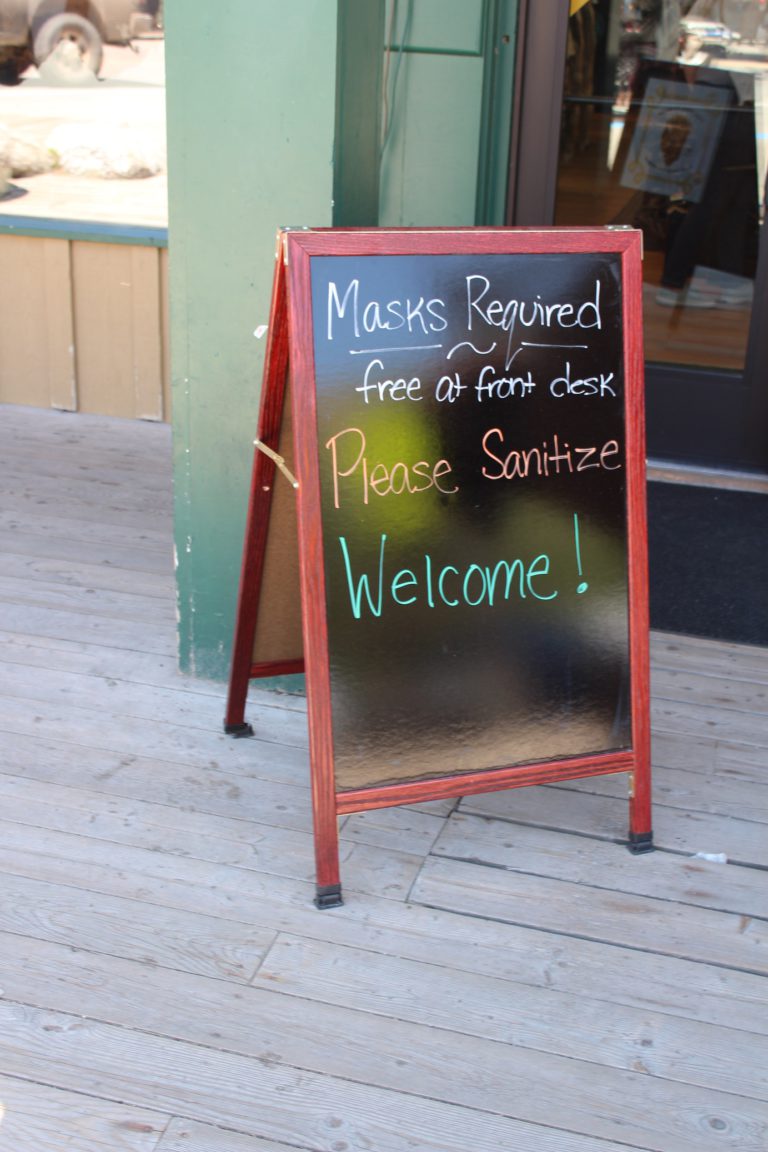 Masks Required
free at front desk
Please Sanitize
Welcome!